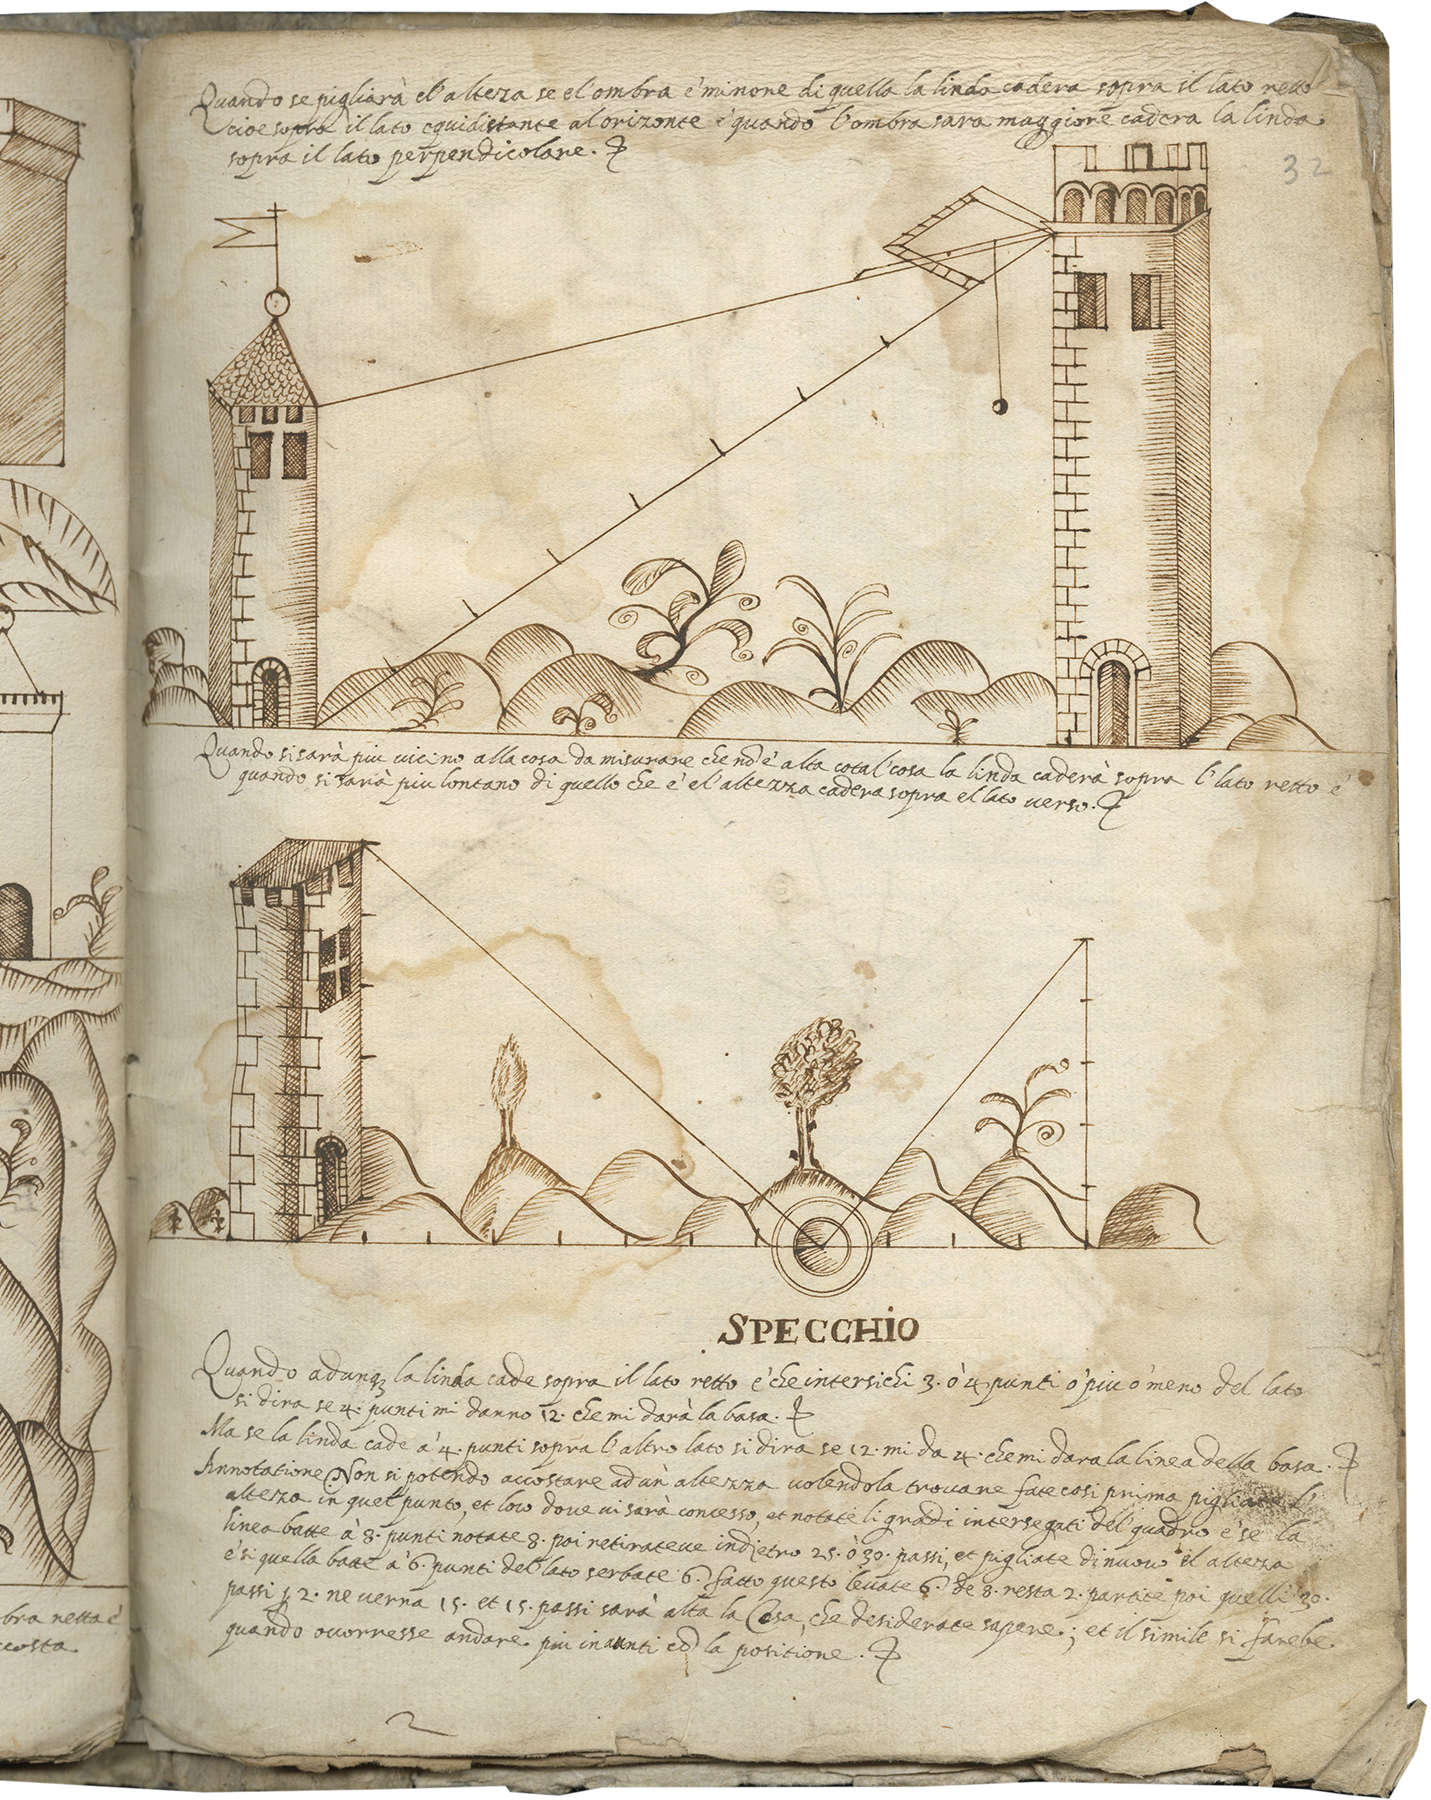 32
Quando se pigliarà el'alteza se el'ombra è minone di quella la linda cadera sopra il lato retto
cioe sopra il lato equidistante al orizonte è quando l'ombra sara maggiore cadera la linda
sopra il lato perpendicolare.
Quando si sarà piu vicino alla cosa da misurare che nō è alta cotal'cosa la linda caderà sopra l'lato retto è
quando si sarà piu lontano di quello che è el'altezza cadera sopra el lato verso.
SPECCHIO
Quando adunqȝ la linda cade sopra il lato retto è che intersichi 3. ò 4 punti ò piu ò meno del lato
si dira se 4. punti mi danno 12. che mi darà la basa.
Ma se la linda cade à 4. punti sopra l'altro lato si dirà se 12. mi da 4. che mi dara la linea della basa.
Annotatione Non si potendo accostare ad un' altezza volendola trovare fate cosi prima pigliate l'
alteza in quel punto, et loco dove vi sarà concesso, et notate li gradi intersegati del' quadro è se la
linea batte à 8. punti notate 8. poi retirateve indietro 25. ò 30. passi, et pigliate di nuovo il alteza
è si quella batte à 6. punti del' lato serbate 6. fatto questo levate 6. de 8. resta 2. partite poi quelli 30.
passi ꝑ 2. ne verna 15. et 15. passi sarà alta la Cosa, che desiderate sapere.; et il simile si farebe.
quando occorresse andare piu inanti cō la positione.
bra retta è
ccosta
2